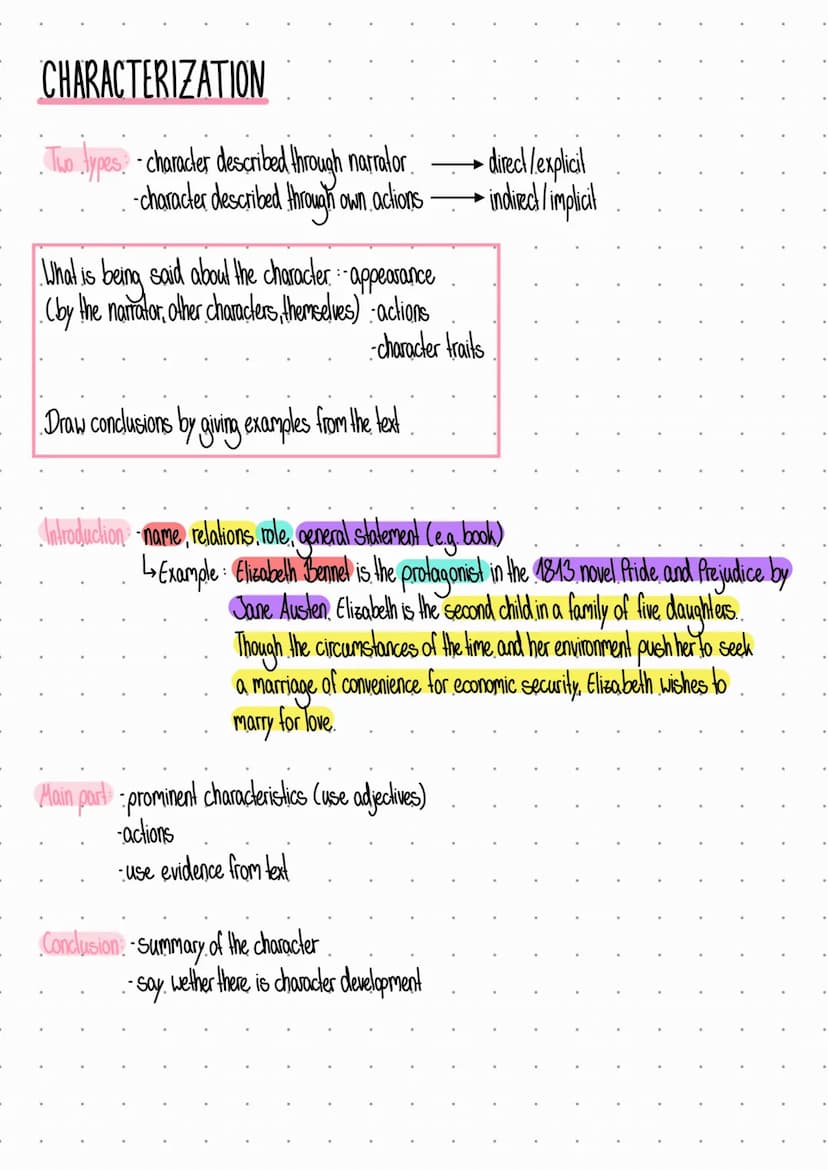 CHARACTERIZATION
Two types: - character described through narrator → direct/explicit
- character described through own actions → indirect/implicit
What is being said about the character: - appearance
(by the narrator, other characters, themselves) - actions
- character traits
Draw conclusions by giving examples from the text
Introduction: - name, relations, role, general statement (e.g. book)
↳ Example: Elizabeth Bennet is the protagonist in the 1813 novel Pride and Prejudice by
Jane Austen. Elizabeth is the second child in a family of five daughters.
Though the circumstances of the time and her environment push her to seek
a marriage of convenience for economic security, Elizabeth wishes to
marry for love.
Main part: - prominent characteristics (use adjectives)
- actions
- use evidence from text
Conclusion: - summary of the character
- say wether there is character development